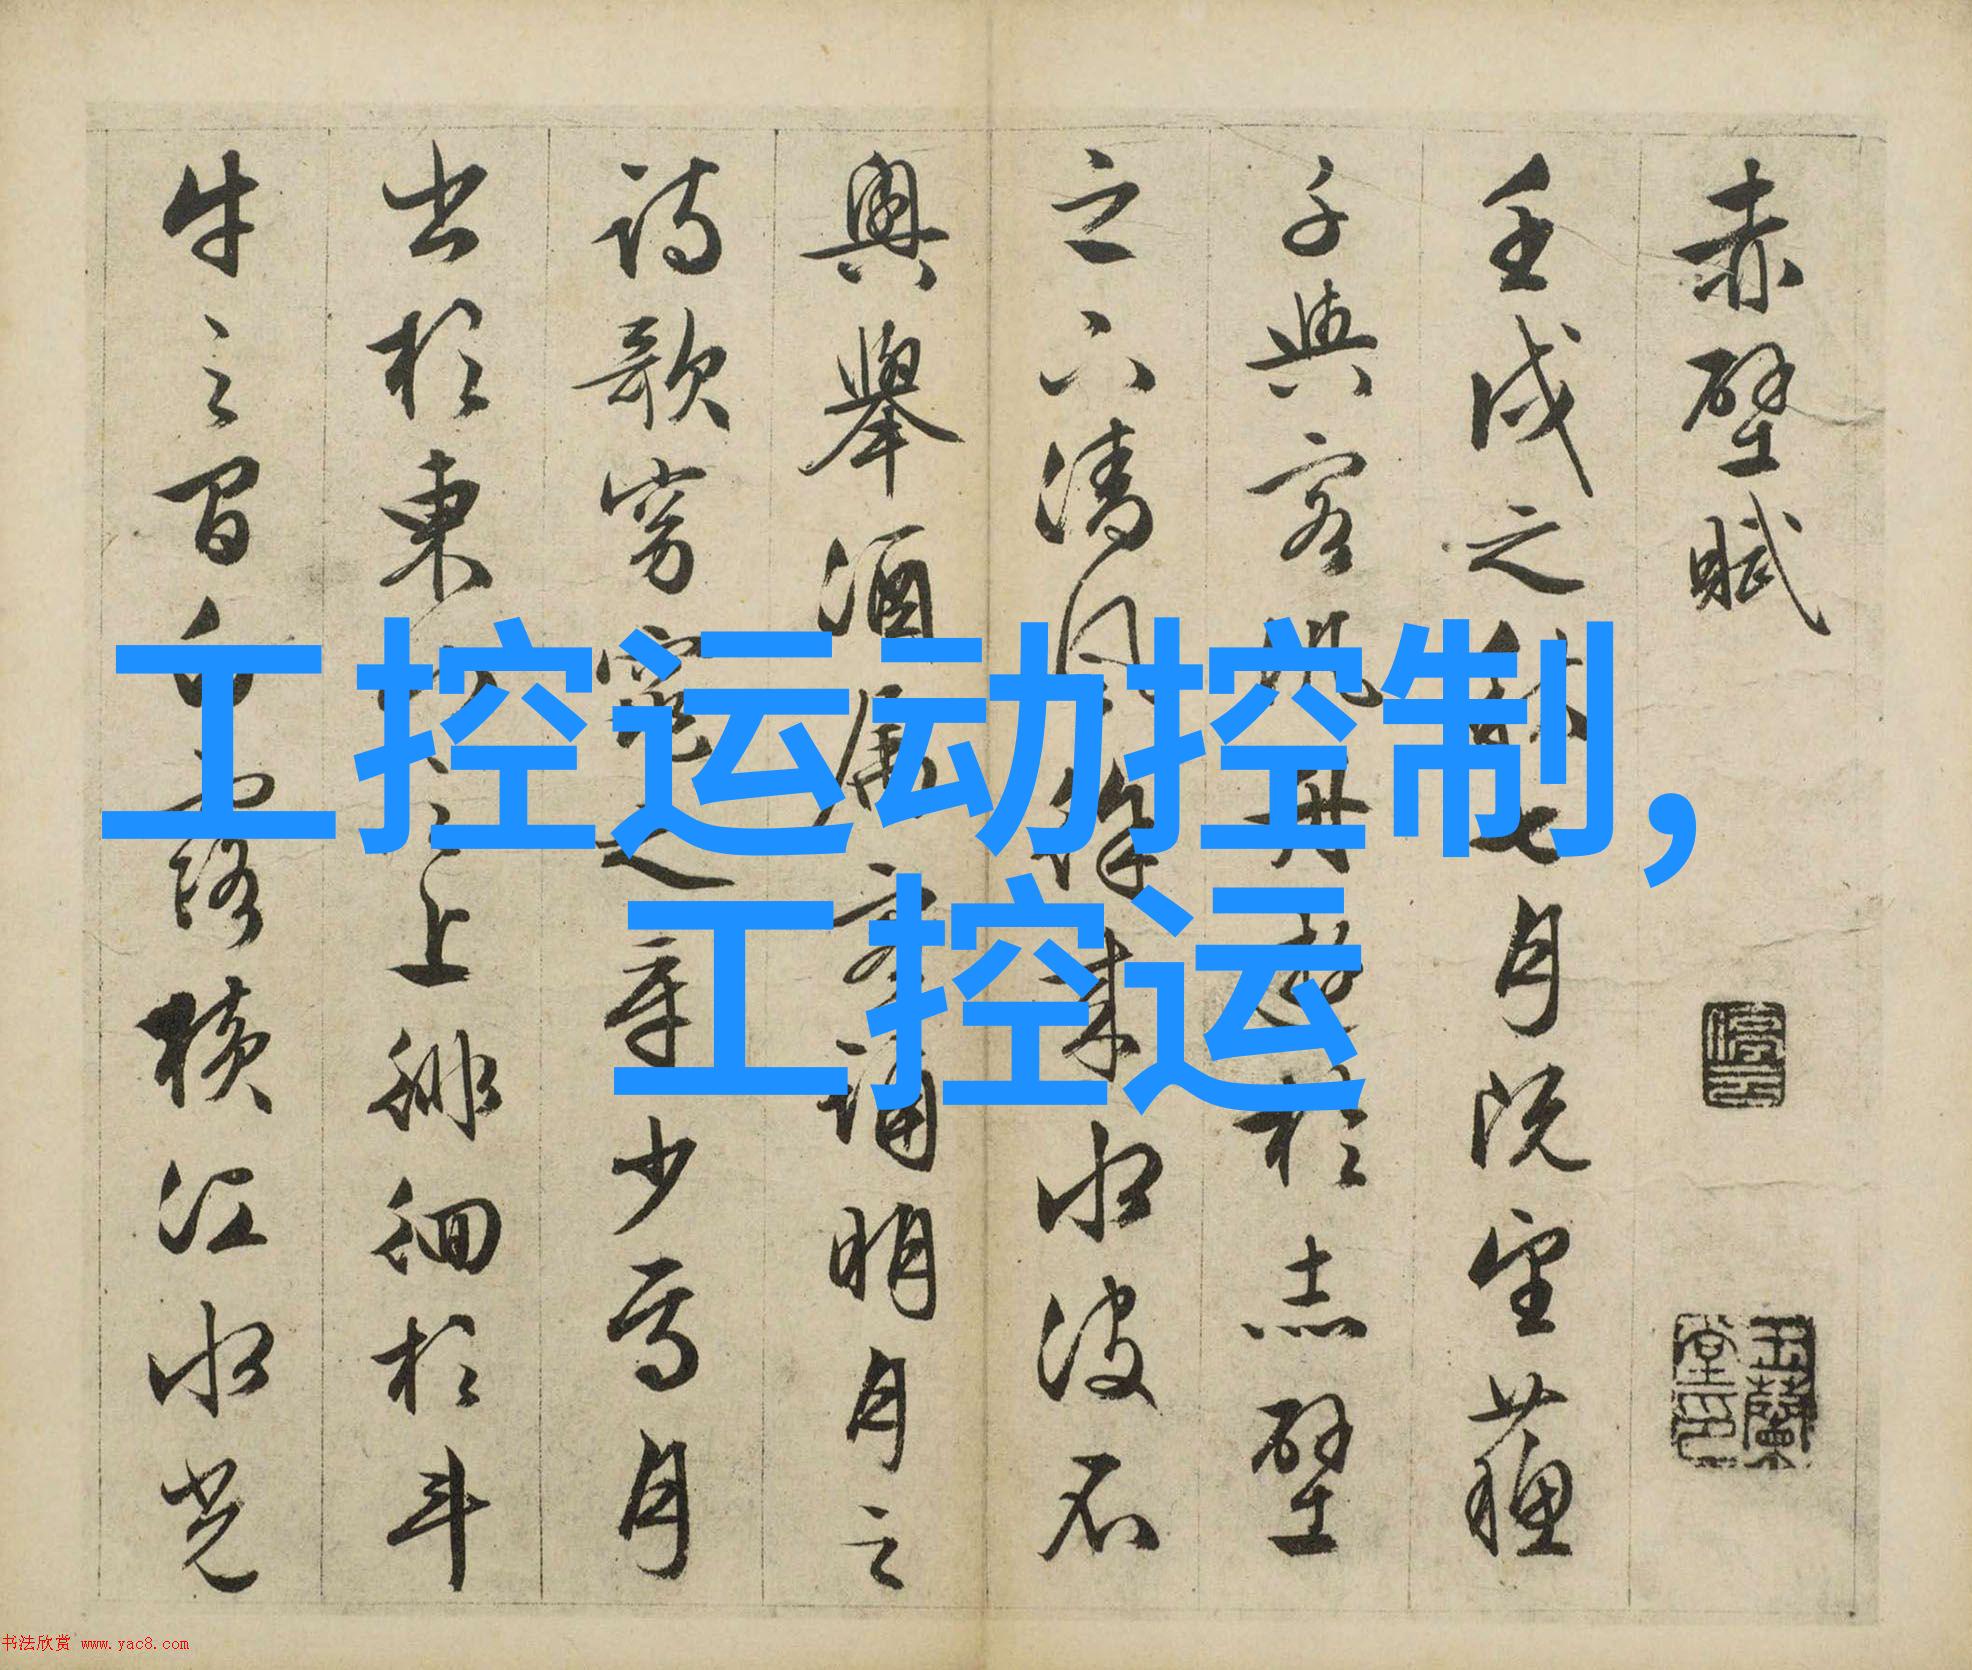 工控运动控制,
工控运
赤壁賦
壬戌之秋七月既望蘇
子與客汎舟遊於赤壁
之下清風徐来水波不
興舉酒属客誦明月之
詩歌窈窕之章少焉月
出於東山之上徘徊於斗
牛之間白露横江水光
停云
玉蘭堂印
书法欣赏 www.yac8.com